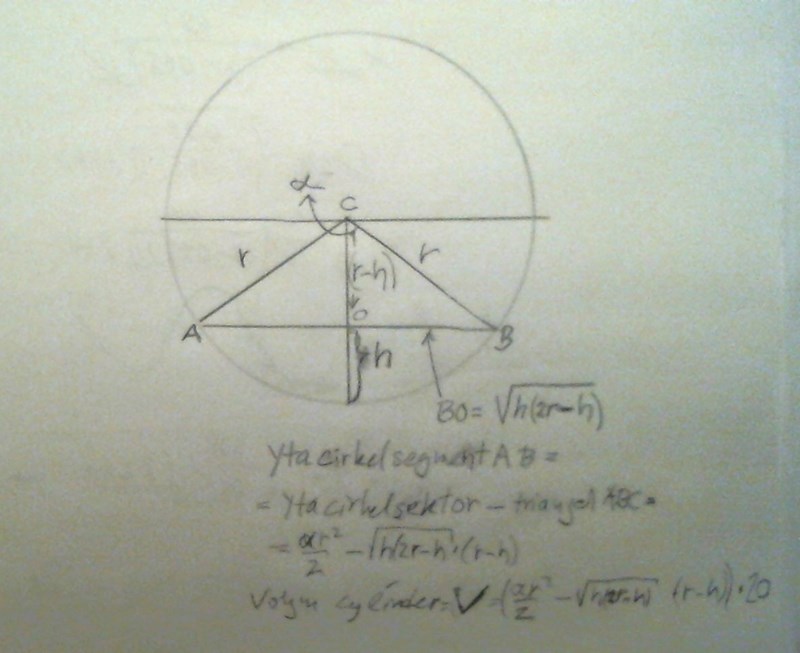 α
C
r
r
(r-h)
O
A
B
h
BO = √h(2r-h)
Yta cirkelsegment AB =
= Yta cirkelsektor - triangel ABC =
= αr²/2 - √h(2r-h) · (r-h)
Volym cylinder = V = (αr²/2 - √h(2r-h) (r-h)) · 20